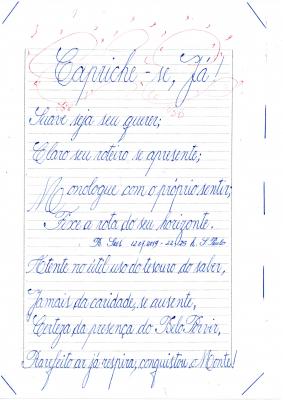 Capriche-se, Já!
Suave seja seu querer;
Claro seu roteiro se apresente;
Monologue com o próprio sentir;
Fixe a rota do seu horizonte.
Atente no útil uso do tesouro do saber,
Jamais da caridade, se ausente,
Certeza da presença do Belo Porvir,
Rarefeito ar já respira, conquistou, o Monte!